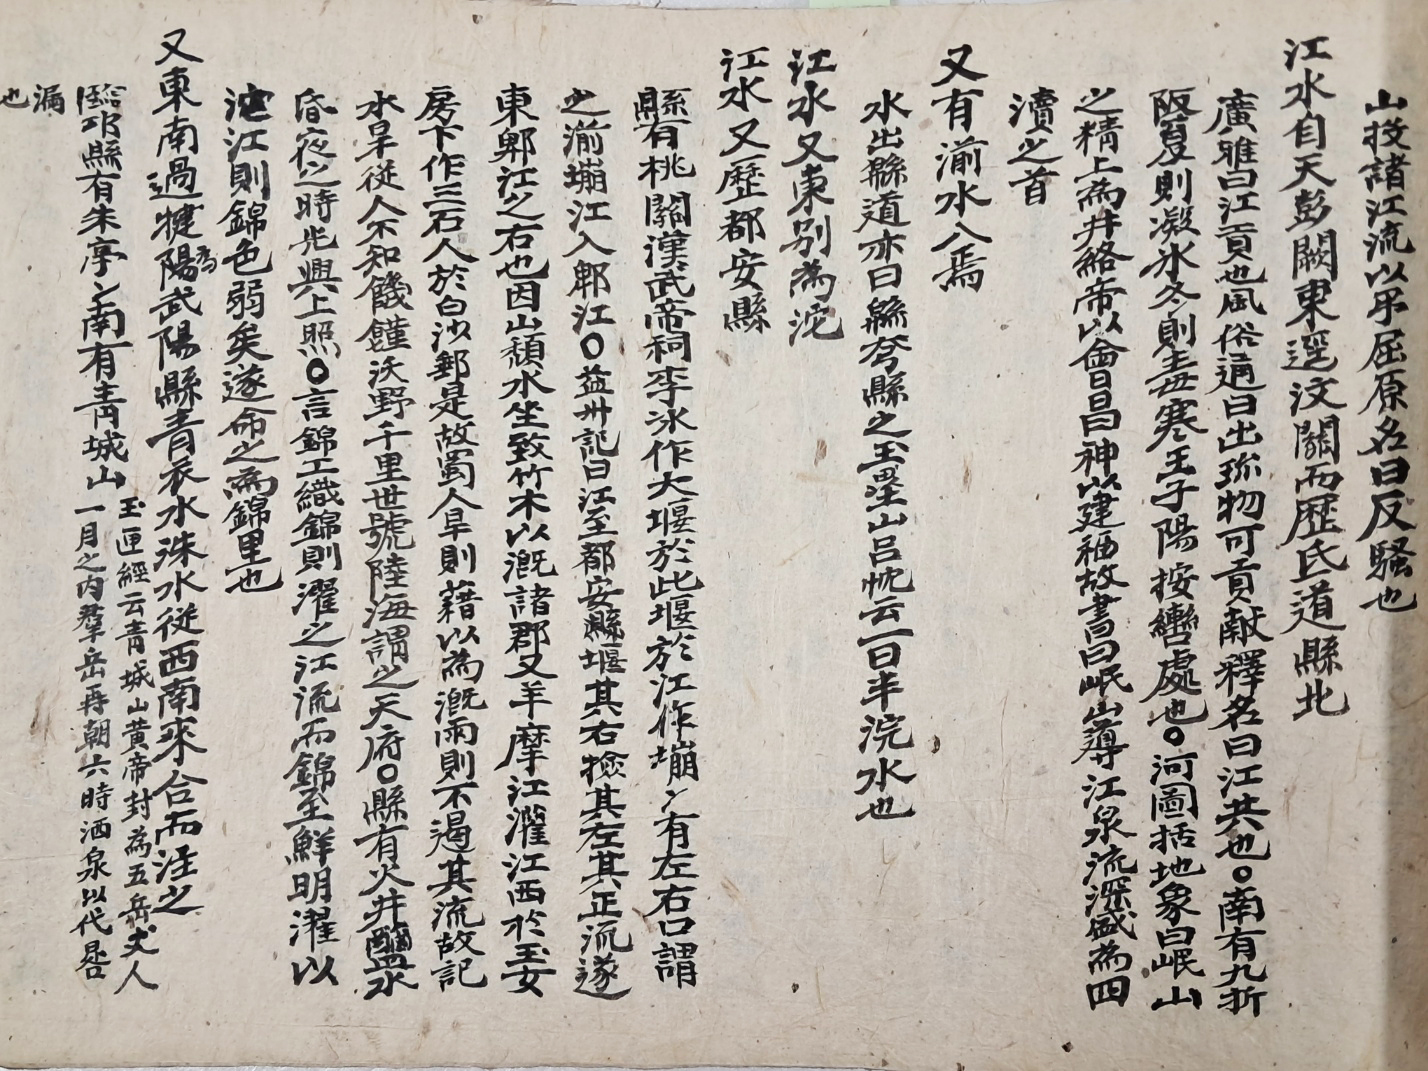 山投諸江流以弔屈原名曰反騷也
江水自天彭闕東逕汶關而歷氐道縣北
廣雅曰江貢也風俗通曰出珎物可貢獻釋名曰江共也○南有九折
阪夏則凝氷冬則毒寒王子陽按轡處也○河圖括地象曰岷山
之精上為井絡帝以會昌神以建福故書曰岷山導江泉流深盛為四
瀆之首
又有湔水入焉
水出緜道亦曰緜虒縣之玉壘山呂忱云一曰半浣水也
江水又東別為沱
江水又歷都安縣
縣有桃關漢武帝祠李冰作大堰於此堰於江作堋〻有左右口謂
之湔堋江入郫江○益州記曰江至都安縣堰其右撿其左其正流遂
東郫江之右也因山頹水坐致竹木以溉諸郡又羊摩江灌江西於玉女
房下作三石人於白沙郵是故蜀人旱則藉以為溉雨則不遏其流故記
水旱從人不知饑饉沃野千里世號陸海謂之天府○縣有火井鹽水
昏夜之時光興上照○言錦工織錦則濯之江流而錦至鮮明濯以
沱江則錦色弱矣遂命之為錦里也
又東南過犍為武陽縣青衣水洙水從西南來合而注之
臨邛縣有朱亭〻南有青城山
玉匣經云青城山黄帝封為五岳丈人
一月之内羣岳再朝六時洒泉以代晷
漏
也